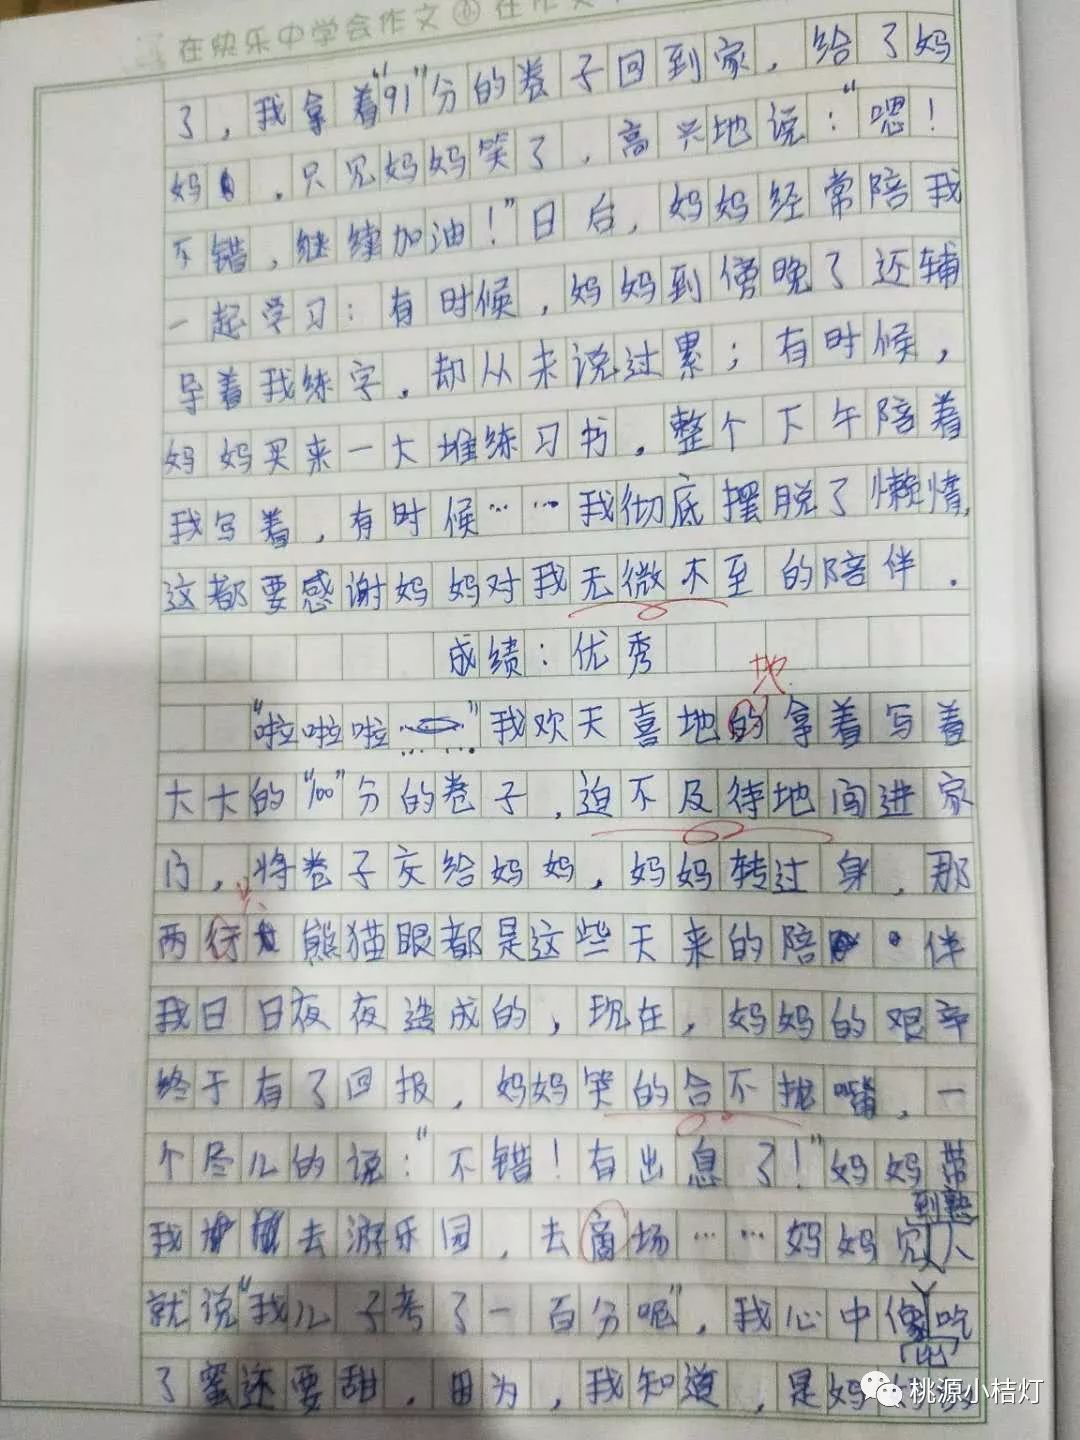 在快乐中学会作文 在作文
了，我拿着“91”分的卷子回到家，给了妈
妈。只见妈妈笑了，高兴地说：“嗯！
不错，继续加油！”日后，妈妈经常陪我
一起学习：有时候，妈妈到傍晚了还辅
导着我练字，却从未说过累；有时候，
妈妈买来一大堆练习书，整个下午陪着
我写着，有时候……我彻底摆脱了懒惰，
这都要感谢妈妈对我无微不至的陪伴。
成绩：优秀
地
“啦啦啦……”我欢天喜地的拿着写着
大大的“100”分的卷子，迫不及待地闯进家
门，将卷子交给妈妈，妈妈转过身，那
两行熊猫眼都是这些天来的陪伴
我日日夜夜造成的，现在，妈妈的艰辛
终于有了回报，妈妈笑的合不拢嘴，一
个尽儿的说：“不错！有出息了！”妈妈带
到熟
我去游乐园，去商场……妈妈见人
就说“我儿子考了一百分呢”，我心中像吃
了蜜还要甜，因为，我知道，是妈妈
桃源小桔灯